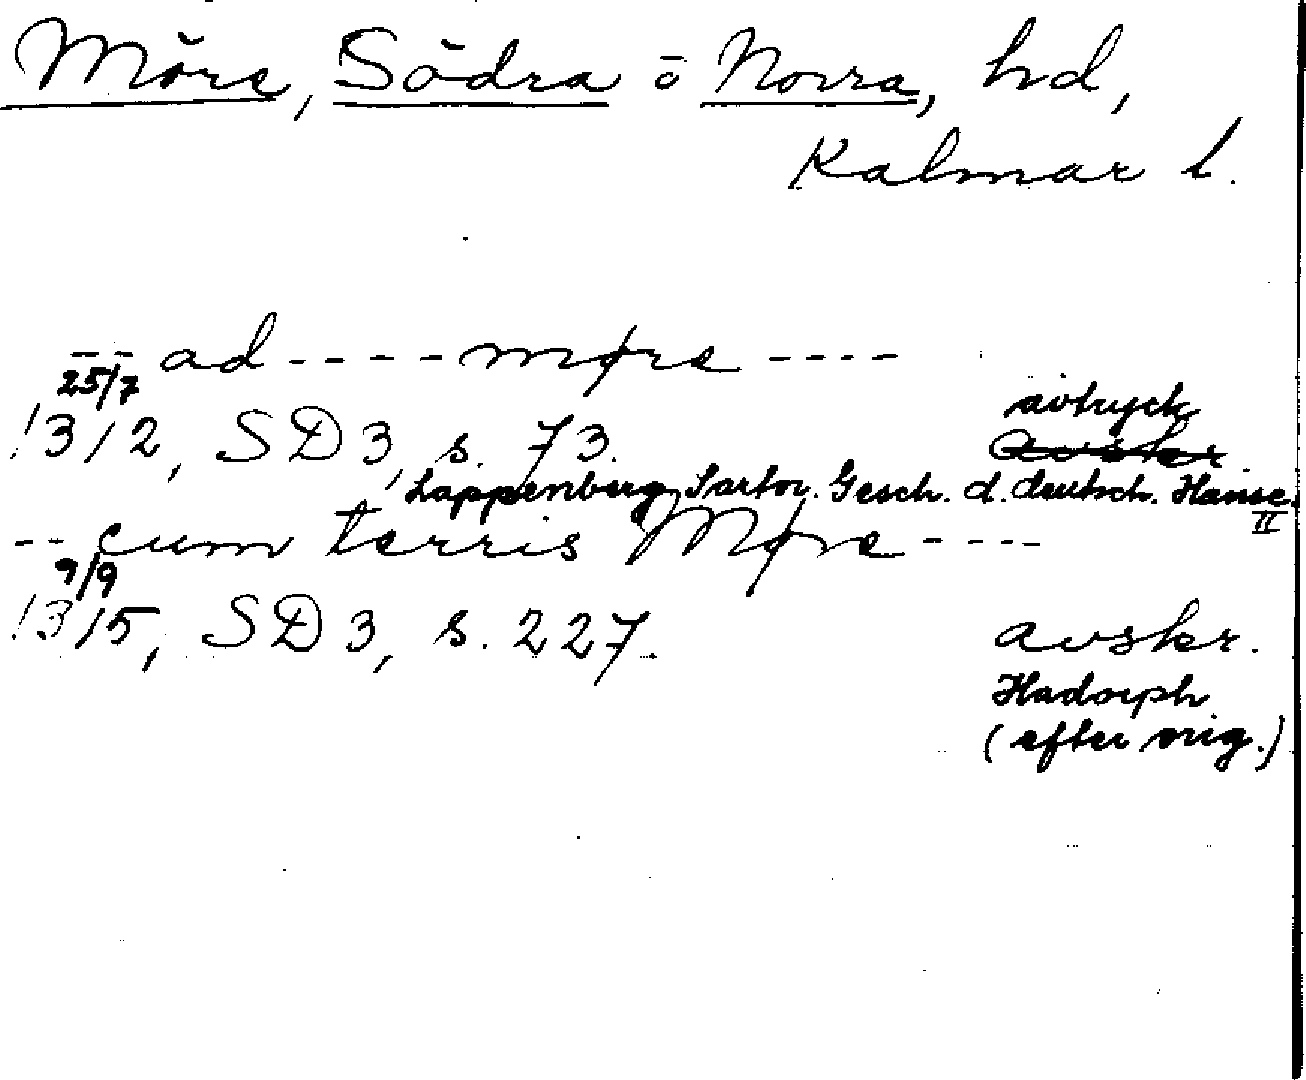 Möre, Södra o Norra, hd,
Kalmar l.
-- ad ---- møre ----
25/7
1312, SD 3, s. 73. avtryck
avskr.
Lappenberg, Sartor. Gesch. d. deutsch. Hanse.
II
-- cum terris Møre ----
9/9
1315, SD 3, s. 227. avskr.
Hadorph
(efter orig.)